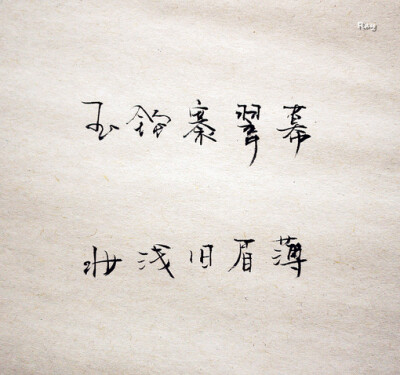 Ray
玉鈎褰翠幕
妆浅旧眉薄